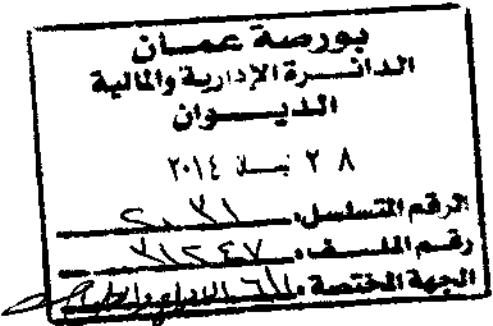 بورصة عمان
الدائرة الإدارية والمالية
الديوان
٢ ٨ نيسان ٢٠١٤
الرقم المتسلسل: ٢٠٣١
رقم الملف: ٣١٢٤٧
الجهة المختصة: